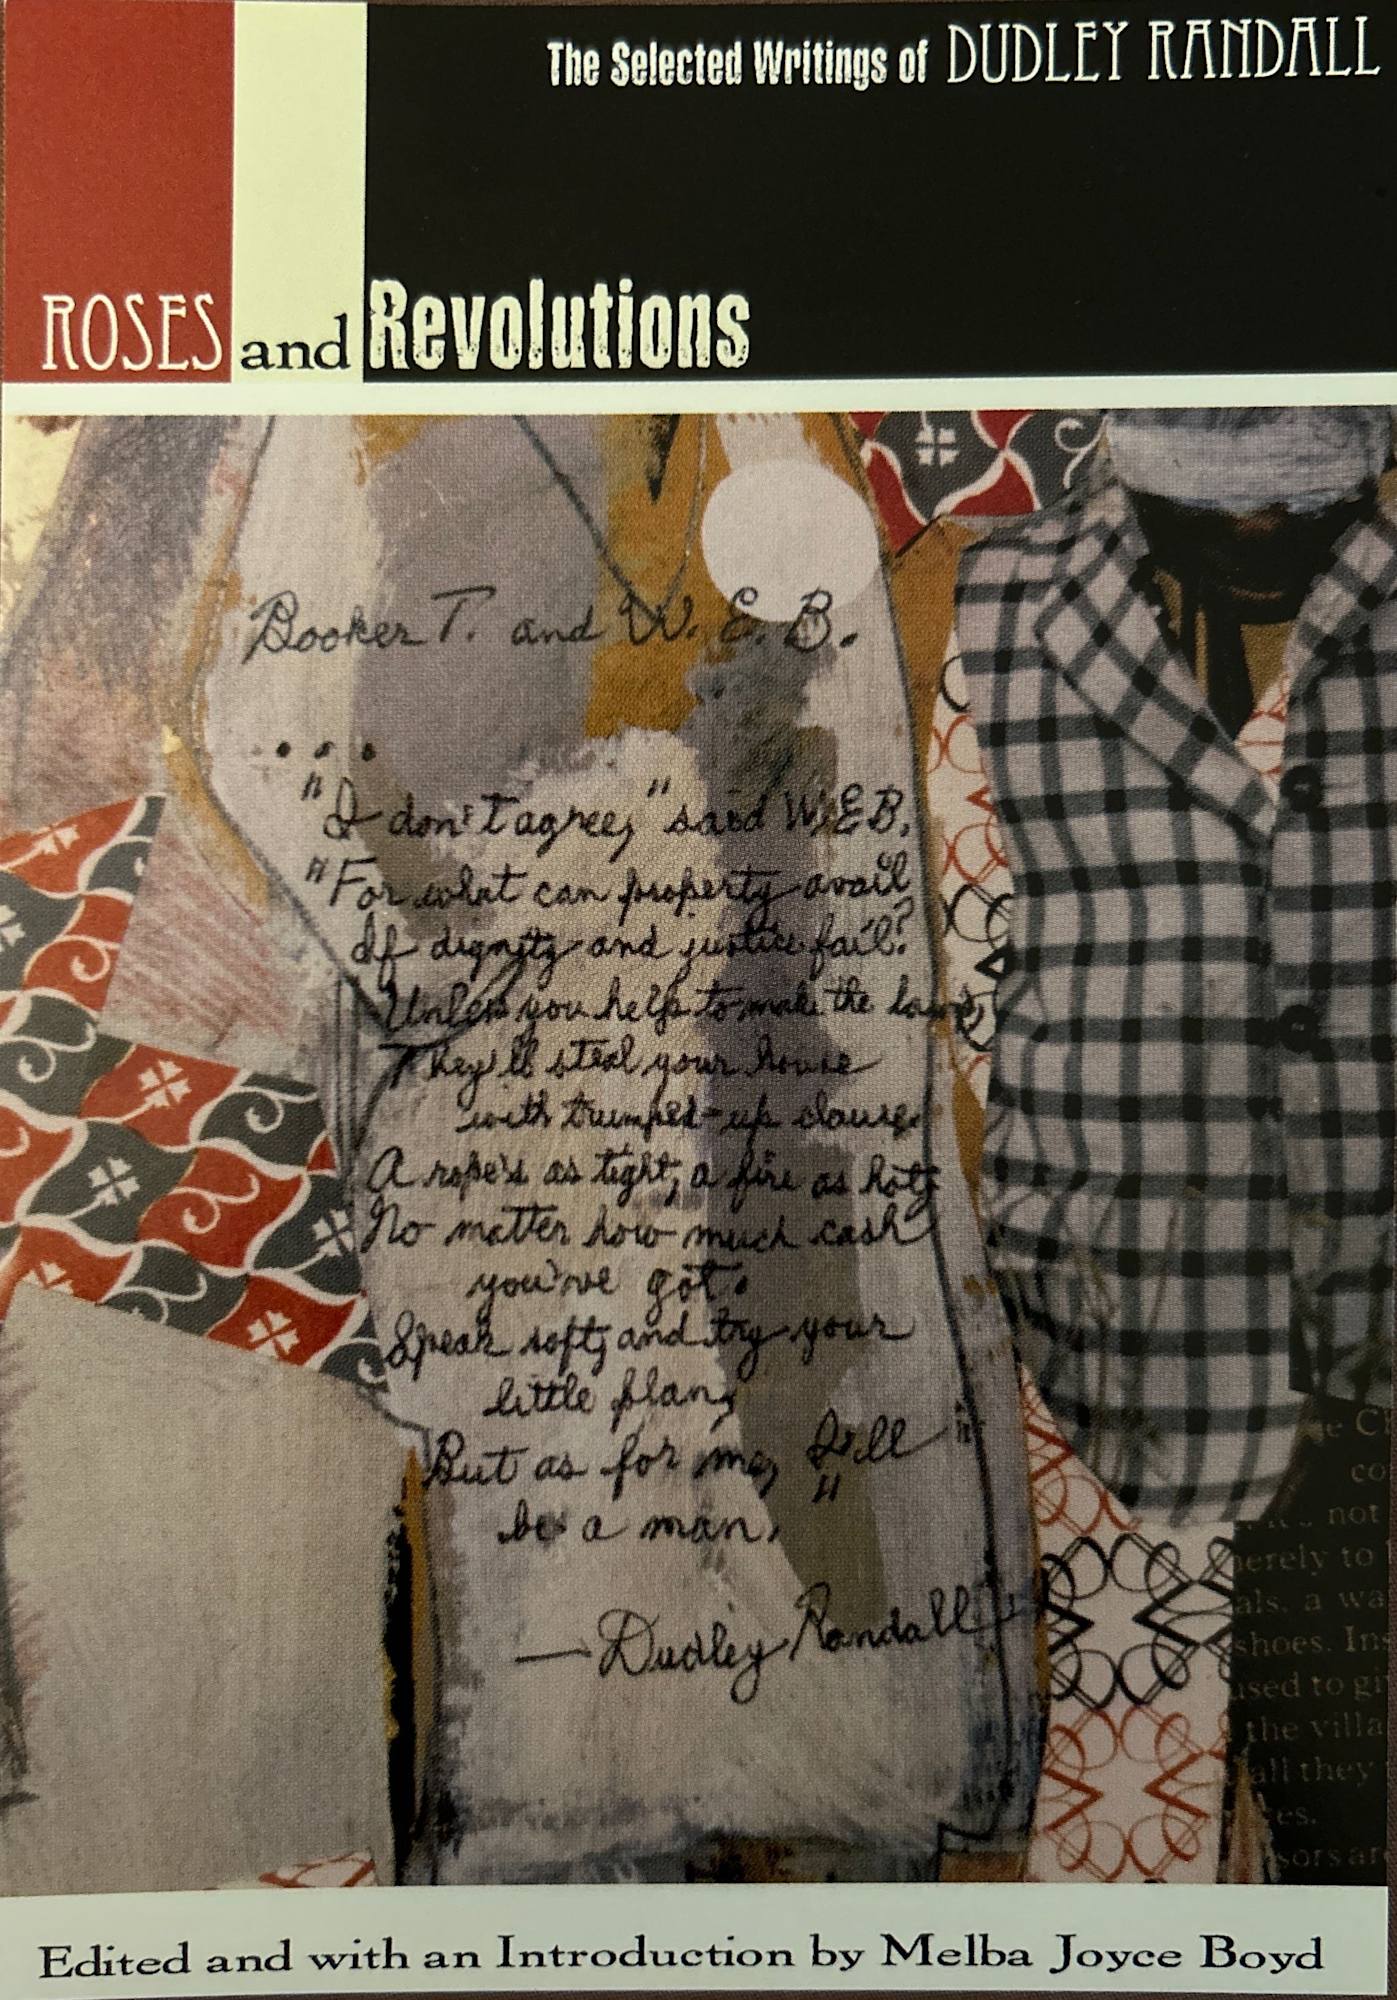 The Selected Writings of DUDLEY RANDALL
ROSES and Revolutions
Booker T. and W. E. B.
....
"I don't agree," said W.E.B.
"For what can property avail
If dignity and justice fail?
Unless you help to make the laws,
They'll steal your house
with trumped-up clause.
A rope's as tight, a fire as hot,
No matter how much cash
you've got.
Speak soft, and try your
little plan,
But as for me, I'll
be a man."
—Dudley Randall
co
not
to
a wa
shoes. In
used to gi
the villa
all they
Edited and with an Introduction by Melba Joyce Boyd